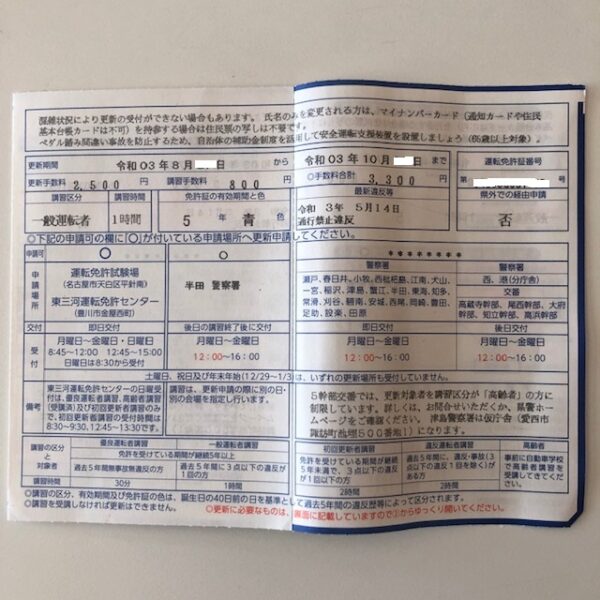 混雑状況により更新の受付ができない場合もあります。氏名のみを変更される方は、マイナンバーカード（通知カードや住民
基本台帳カードは不可）を持参する場合は住民票の写しは不要です。
ペダル踏み間違い事故を防止するため、自治体の補助金制度を活用して安全運転支援装置を設置しましょう（65歳以上対象）。
更新期間 令和03年8月 日 から 令和03年10月 日 まで
運転免許証番号
第
更新手数料 2,500円 講習手数料 800円 ○手数料合計 3,300円
講習区分 講習時間 免許証の有効期間と色 最新違反等 県外での経由申請
一般運転者 1時間 5年 青色 令和 3年 5月14日
通行禁止違反
否
○下記の申請可の欄に［○］が付いている申請場所へ更新申請してください。
申請可 ○ ○ *******
申請場所
運転免許試験場
（名古屋市天白区平針南）
東三河運転免許センター
（豊川市金屋西町）
半田 警察署
警察署
瀬戸、春日井、小牧、西枇杷島、江南、犬山、
一宮、稲沢、津島、蟹江、半田、東海、知多、
常滑、刈谷、碧南、安城、西尾、岡崎、豊田、
足助、設楽、田原
警察署
西、港（分庁舎）
交番
高蔵寺幹部、尾西幹部、大府
幹部、知立幹部、高浜幹部
交付 即日交付 後日の講習終了後に交付 即日交付 後日交付
受付
月曜日〜金曜日・日曜日
8:45〜12:00 12:45〜15:00
日曜日は8:30から受付
月曜日〜金曜日
12:00〜16:00
月曜日〜金曜日
12:00〜16:00
月曜日〜金曜日
12:00〜16:00
土曜日、祝日及び年末年始（12/29〜1/3）は、いずれの更新場所も受付していません。
備考
東三河運転免許センターの日曜受
付は、優良運転者講習、高齢者講習
（受講済）及び初回更新者講習のみ
で、初回更新者講習の受付時間は
8:30〜9:30、12:45〜13:30です。
講習は、更新申請の際に別の日・
別の会場を指定し行います。
5幹部交番では、更新対象者を講習区分が「高齢者」の方に
制限しています。詳しくは、お問合せいただくか、県警ホー
ムページをご確認ください。津島警察署は仮庁舎（愛西市
諏訪町池埋500番地1）になります。
講習の区分と対象者
優良運転者講習 一般運転者講習 初回更新者講習 違反運転者講習 高齢者
免許を受けている期間が継続5年以上
過去5年間無事故無違反の方
過去5年間に3点以下の違反が1回の方
免許を受けている期間が継続5年未満で、3点以下の違反が1回以下の方
過去5年間に、違反・事故（3点以下の違反1回を除く）がある方
事前に自動車学校で高齢者講習を受講してきてください。
講習時間 30分 1時間 2時間 2時間
○講習の区分、有効期間及び免許証の色は、誕生日の40日前の日を基準として過去5年間の違反歴等によって区分されます。
○講習を受講しなければ更新はできません。
○更新に必要なものは、裏面に記載していますので①からゆっくり開いてください。